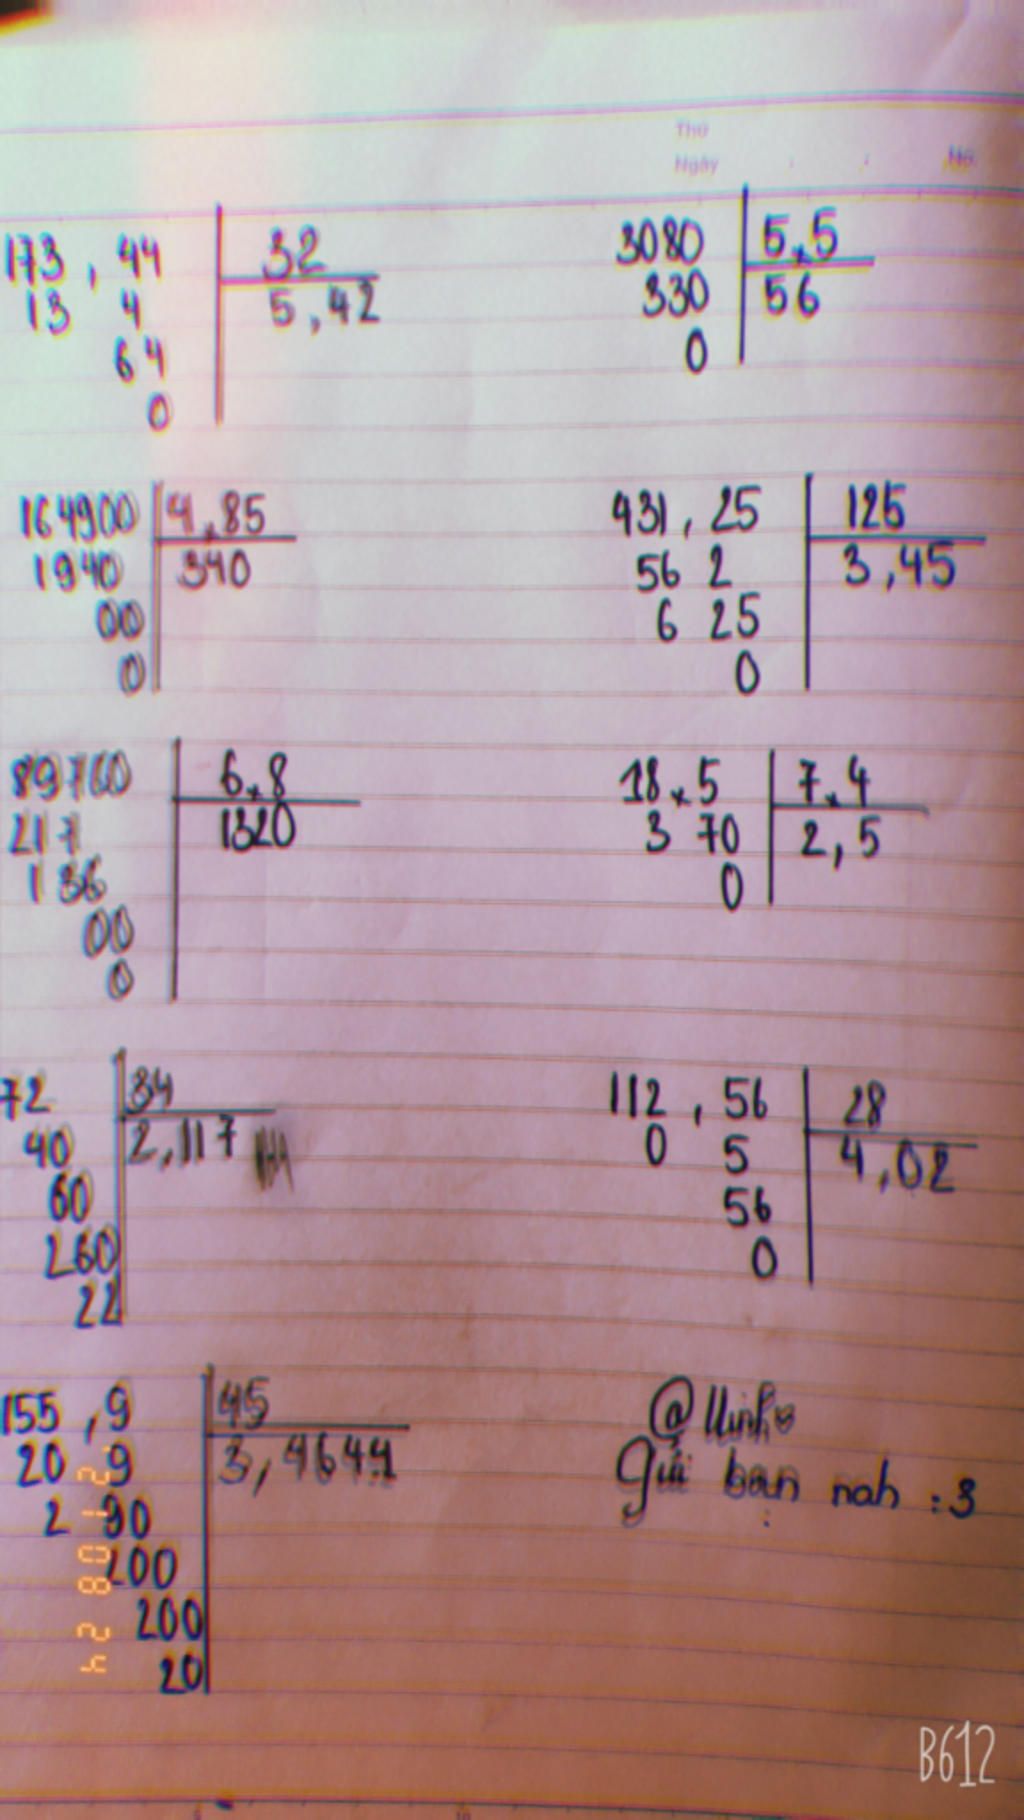 Thứ
Ngày : : No.
173,44 32
13 4 5,42
64
0
3080 5,5
330 56
0
164900 4,85
1940 340
00
0
431,25 125
56 2 3,45
6 25
0
89760 6,8
217 1320
136
00
0
18,5 7,4
3 70 2,5
0
72 34
40 2,117
60
260
22
112,56 28
0 5 4,02
56
0
155,9 45
20 9 3,4644
2 90
200
200
20
@
Gửi bạn nah :3
21 08 24
B612